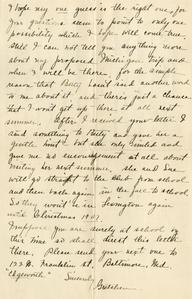 I hope my one guess is the right one, for
your questions seem to point to only one
possibility which I hope will come true.
Still I can not tell you anything more
about my proposed Michigan trip and
when I will be there for the simple
reason that Betty hasn't said another word
to me about it and there's just a chance
that I won't get up there at all next
summer. After I received your letter I
said something to Betty and gave her a
gentle hint - but she only smiled and
give me no encouragement at all about
visiting her next summer. She and Sue
will go straight to the in school
and then back again in the fall to school
So they won't be in Lexington again
until Christmas
I suppose you are surely at school by
this time so shall direct this letter
there, please send your next one to
122 W. Franklin St., Baltimore, Md.
"Edgeworth." Sincerely,